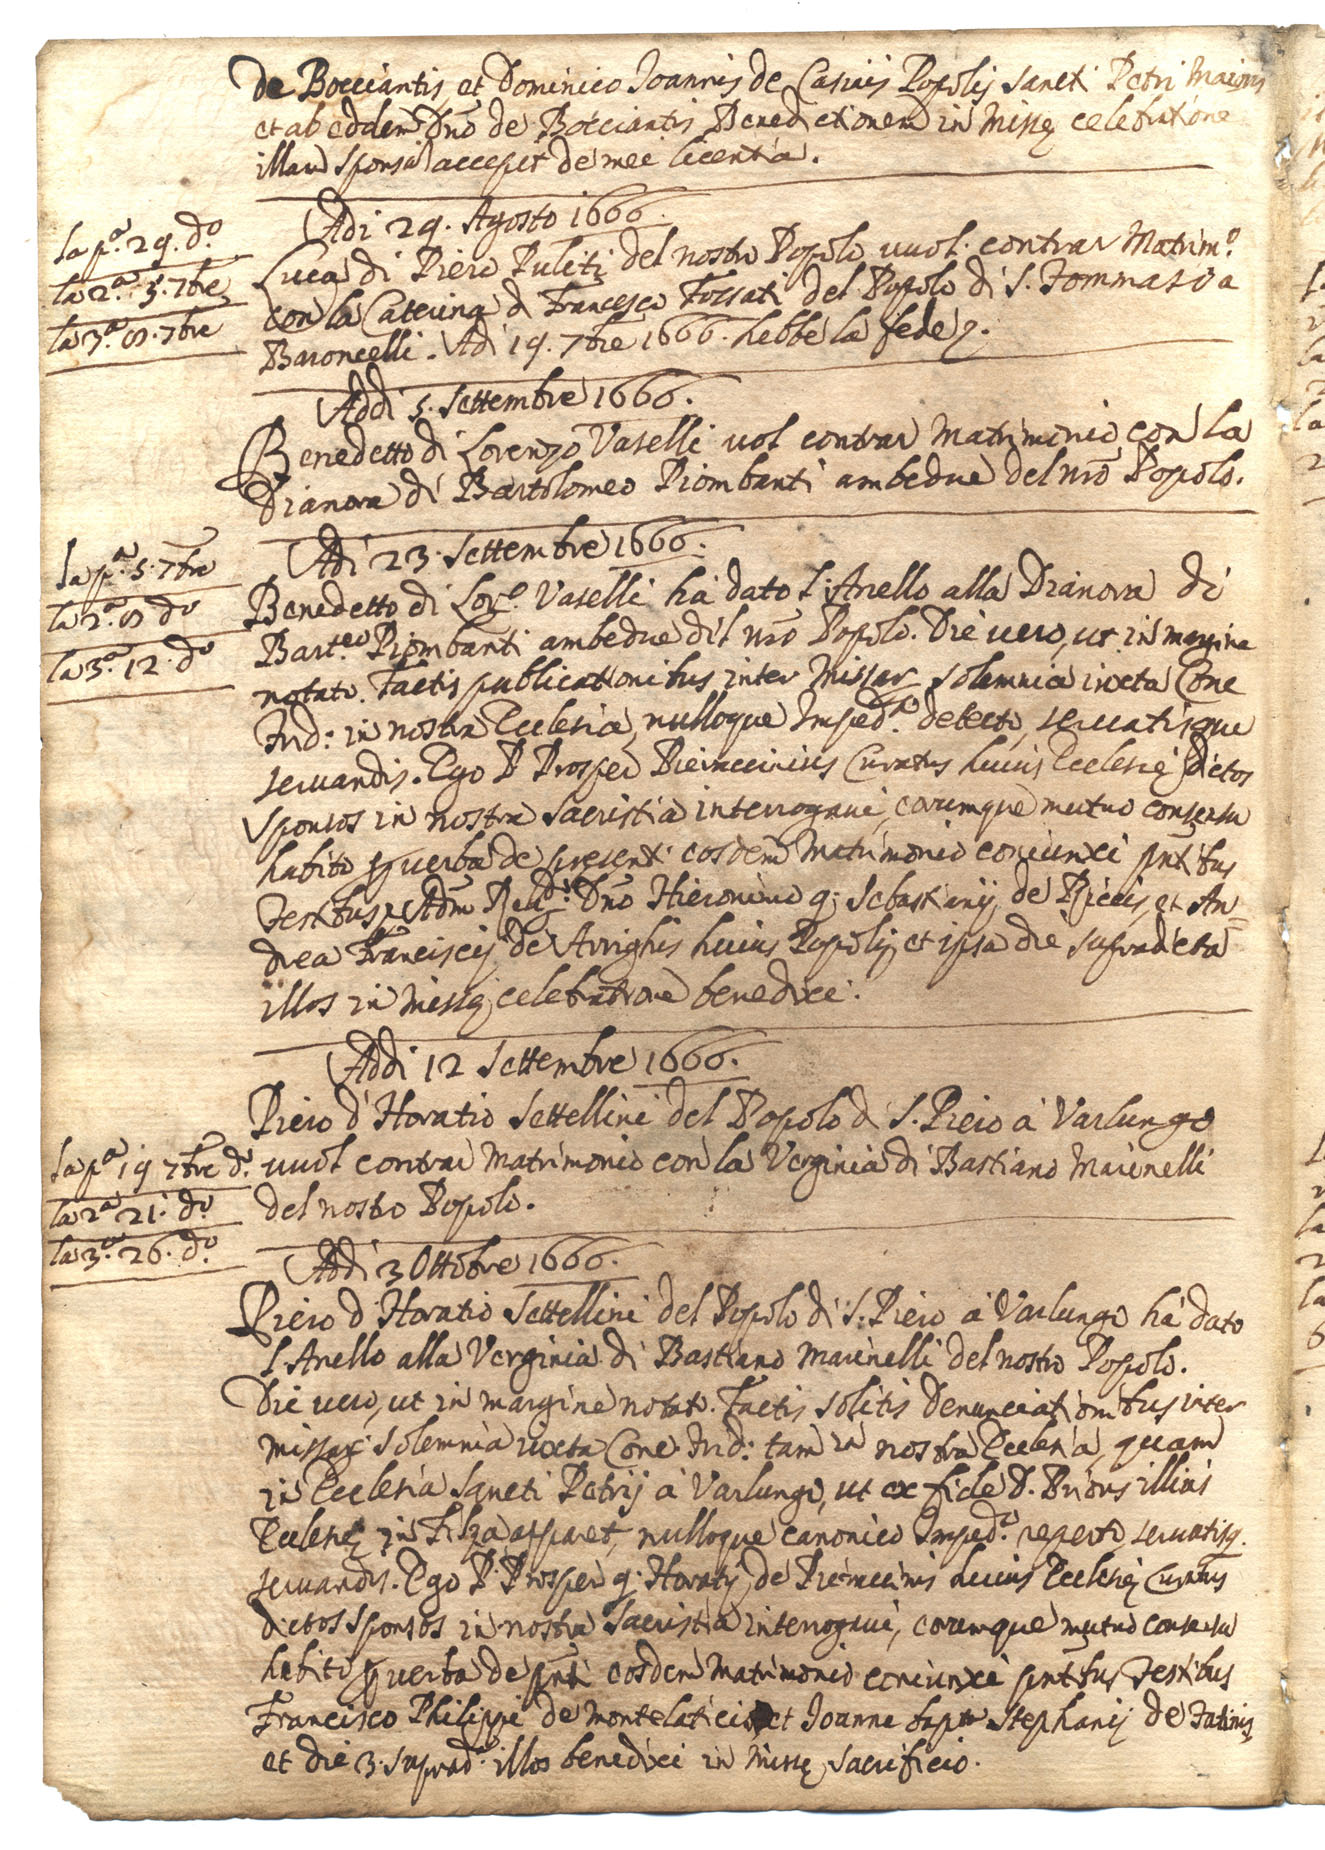 de Bocciantis, et Dominico Joannis de Casinis Popoli Sancti Petri Maioris
et ab eodem Dno de Bocciantis Benedictionem in Missę celebratione
illam sponsa accepit de mei licentia.
Adi 29. Agosto 1666.
La pa. 29. do
la 2a. 5. 7bre
la 3a. 8. 7bre
Luca di Piero Puliti del nostro Popolo vuol contrar Matrimo.
con la Caterina di Francesco Fossati del Popolo di S. Tommaso a
Baroncelli. Adi 19. 7bre 1666. hebbe la fede
Addi 5. Settembre 1666.
Benedetto di Lorenzo Vaselli vol contrar Matrimonio con la
Dianora di Bartolomeo Piombanti ambedue del nro Popolo.
Adi 23. Settembre 1666.
La pa. 5. 7bre
la 2a. 8 do
la 3a. 12. do
Benedetto di Lorzo. Vaselli hà dato l'Anello alla Dianora di
Barteo Piombanti ambedue dil nro Popolo. Die vero, ut in margine
notato. Factis publicationibus inter Missar. solemnia iuxta Conc.
Trid: in nostra Ecclesia, nulloque Imped.o detecto, servatisque
servandis. Ego P Prosper Pieraccinius Curatus huius Ecclesię dictos
sponsos in nostra Sacristia interrogavi, eorumque mutuo consensu
habito p verba de presenti eosdem Matrimonio coniunxi pntibus
Testibus Adm Reu.do Dno Hieronimo q. Sebastianij de Riccis, et An=
drea Francisci de Arrighis huius Popoli, et ipsa die supradicta
illos in Missę celebratione benedixi.
Addi 12 Settembre 1666.
Piero d'Horatio Settellini del Popolo di S. Piero à Varlungo
La pa 19 7bre do.
vuol contrar Matrimonio con la Verginia di Bastiano Marinelli
la 2a 21. do.
del nostro Popolo.
la 3a. 26. do.
Addi 3 Ottobre 1666.
Piero d'Horatio Settellini del Popolo di S. Piero à Varlungo hà dato
l'Anello alla Verginia di Bastiano Marinelli del nostro Popolo.
Die vero, ut in margine notat. Factis solitis Denunciationibus inter
missar. solemnia iuxta Conc. Trid: tam in nostra Ecclesia, quam
in Ecclesia Sancti Petrij à Varlungo, ut ex fide D. Prioris illius
Ecclesię in Filza apparet, nulloque canonico Imped.o reperto, servatisq.
servandis. Ego P. Prosper q. Horatij de Pieraccinis huius Ecclesię Curatus
dictos sponsos in nostra Sacristia interrogavi, eorumque mutuo consensu
habito p verba de pnti eosdem Matrimonio coniunxi pntibus Testibus
Francisco Philippi de Montelaticis et Joanne bapta Stephanij de Fatinis
et die 3. suprad.a illos benedixi in Missę sacrificio.